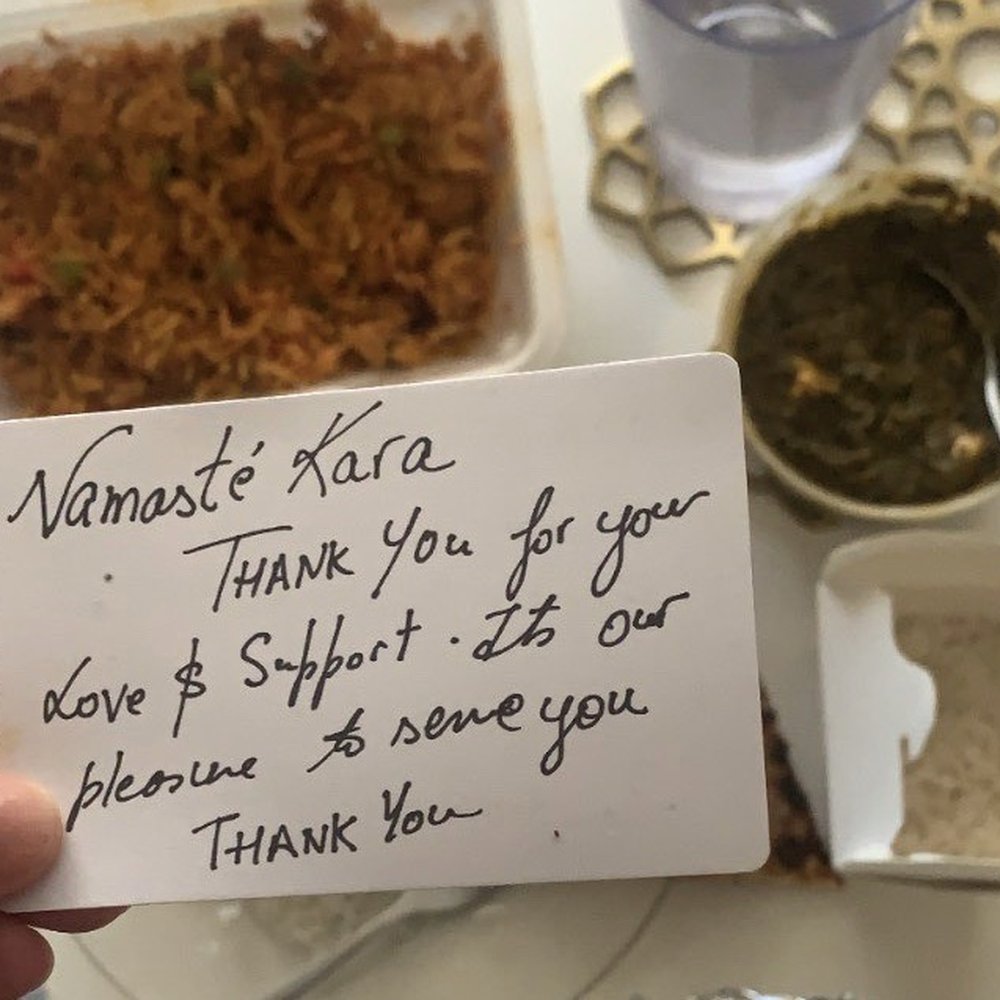 Namasté Kara
THANK You for your
Love & Support. Its our
pleasure to serve you
THANK You